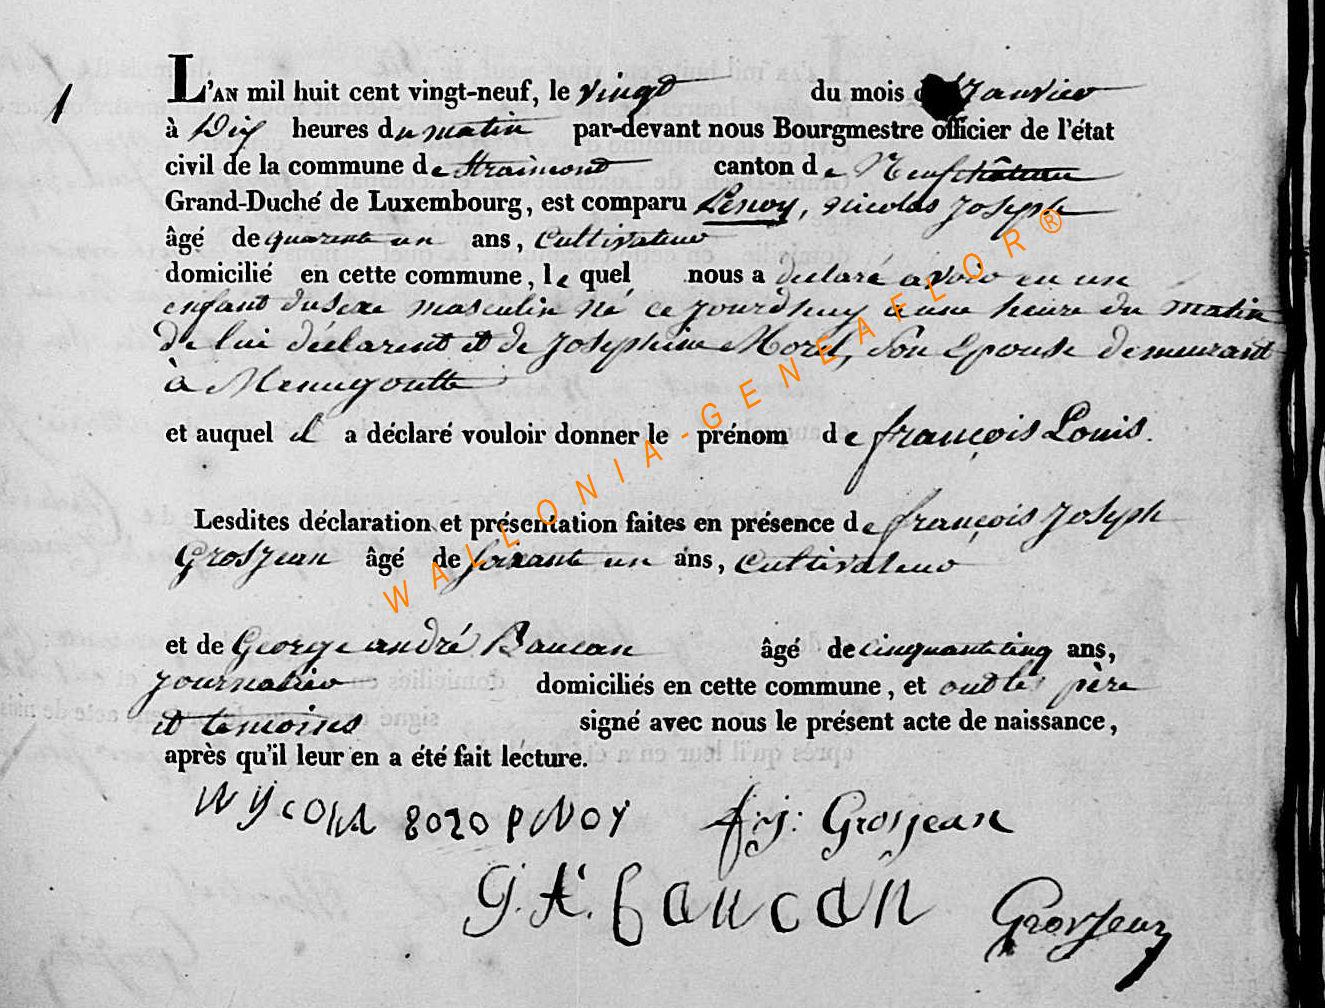 1
L'AN mil huit cent vingt-neuf, le vingt du mois de Janvier
à Dix heures du matin par-devant nous Bourgmestre officier de l'état
civil de la commune de Straimont canton de Neufchâteau
Grand-Duché de Luxembourg, est comparu Penoy, nicolas Joseph
âgé de quarente un ans, Cultivateur
domicilié en cette commune, le quel nous a declaré avoir eu un
enfant du sexe masculin né ce jourdhuy a une heure du matin
De lui déclarent et de Josephine Morel, Son Epouse demeurant
à Menugoutte
et auquel il a déclaré vouloir donner le prénom de françois Louis.
Lesdites déclaration et présentation faites en présence de françois Joseph
Grosjean âgé de soixante un ans, Cultivateur
et de George andré Baucan âgé de cinquante cinq ans,
journalier domiciliés en cette commune, et ont les père
et temoins signé avec nous le présent acte de naissance,
après qu'il leur en a été fait lecture.
f: j: Grosjean
G. A. baucan
Grosjean
WALLONIA-GENEAFLOR®